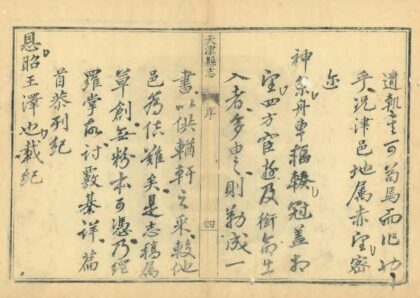 遺軌其可苟焉而作也
乎況津邑地属赤望密
迩
神京舟車輻輳冠盖相
望四方宦遊及銜命生
入者多由之則勒成一
天津縣志
序
四
書以供輶軒之采較他
邑為倍難矣是志稿属
草創無粉本可憑乃經
羅掌故討覈綦詳篇
首恭列紀
恩昭王澤也載紀